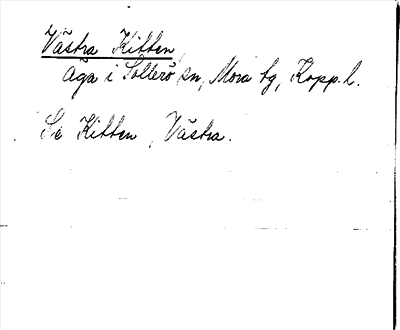 Västra Kitten
Äga i Sollerö sn, Mora tg, Kopp. l.
Se Kitten, Västra.